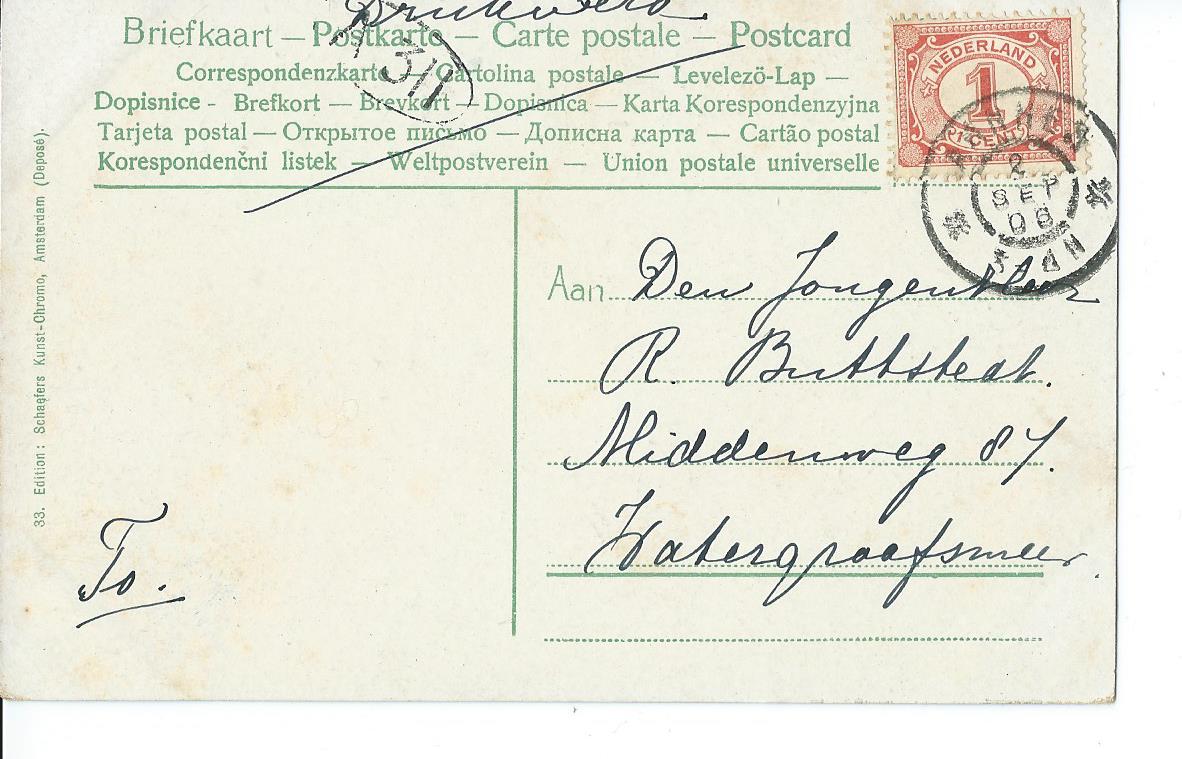 Drukwerk
Briefkaart — Postkarte — Carte postale — Postcard
Correspondenzkarte — Cartolina postale — Levelező-Lap —
Dopisnice - Brefkort — Brevkort — Dopisnica — Karta Korespondenzyjna
Tarjeta postal — Открытое письмо — Дописна карта — Cartão postal
Korespondenčni listek — Weltpostverein — Union postale universelle
NEDERLAND
1
1 CENT
2
SEP
08
3-4N
Aan Den Jongenheer
R. Buttstedt.
Middenweg 87.
Watergraafsmeer.
To.
33. Edition: Schaefers Kunst-Chromo, Amsterdam (Deposé).